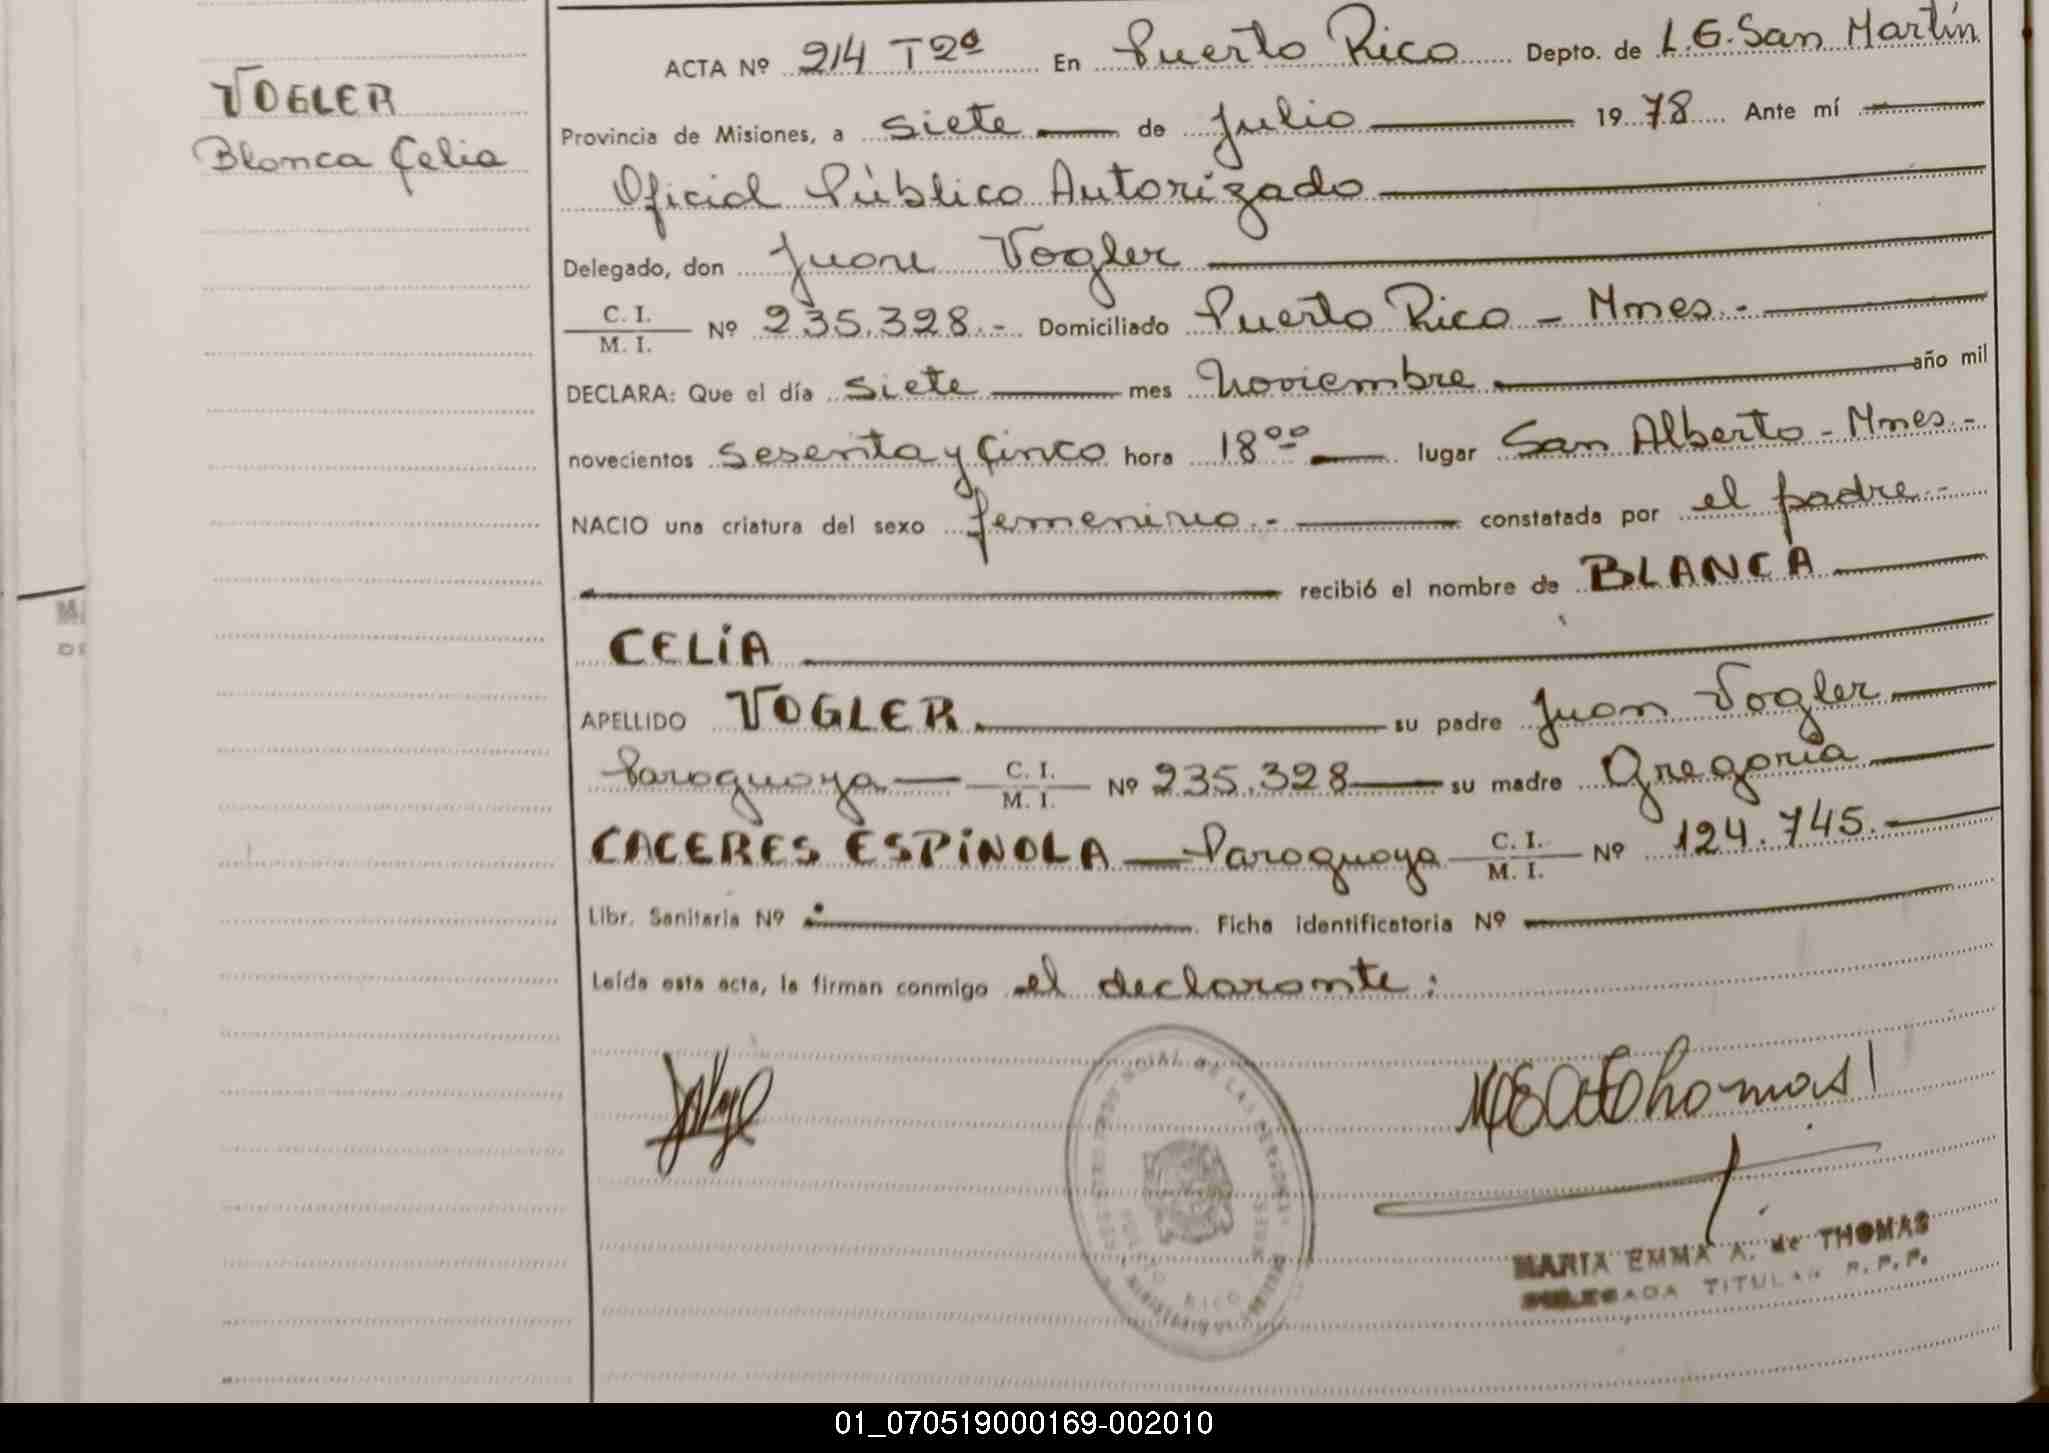 VOGLER
Blanca Celia
ACTA Nº 214 T2º En Puerto Rico Depto. de L.G. San Martín
Provincia de Misiones, a siete de Julio 1978 Ante mí
Oficial Público Autorizado
Delegado, don Juan Vogler
C. I. / M. I. Nº 235.328.- Domiciliado Puerto Rico - Mnes.-
DECLARA: Que el día siete mes Noviembre año mil
novecientos sesenta y cinco hora 18ºº lugar San Alberto - Mnes.-
NACIO una criatura del sexo femenino.- constatada por el padre.-
recibió el nombre de BLANCA
CELIA
APELLIDO VOGLER. su padre Juan Vogler
Paraguaya C. I. / M. I. Nº 235.328 su madre Gregoria
CACERES ESPINOLA Paraguaya C. I. / M. I. Nº 124.745.-
Libr. Sanitaria Nº Ficha identificatoria Nº
Leída esta acta, la firman conmigo el declarante:
MARIA EMMA A. de THOMAS
DELEGADA TITULAR R.P.P.
01_070519000169-002010